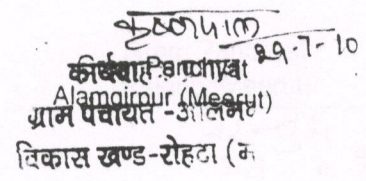 कृष्णपाल
29-7-10
Panchyat
Alamgirpur (Meerut)
ग्राम पंचायत -आलम
विकास खण्ड-रोहटा (म